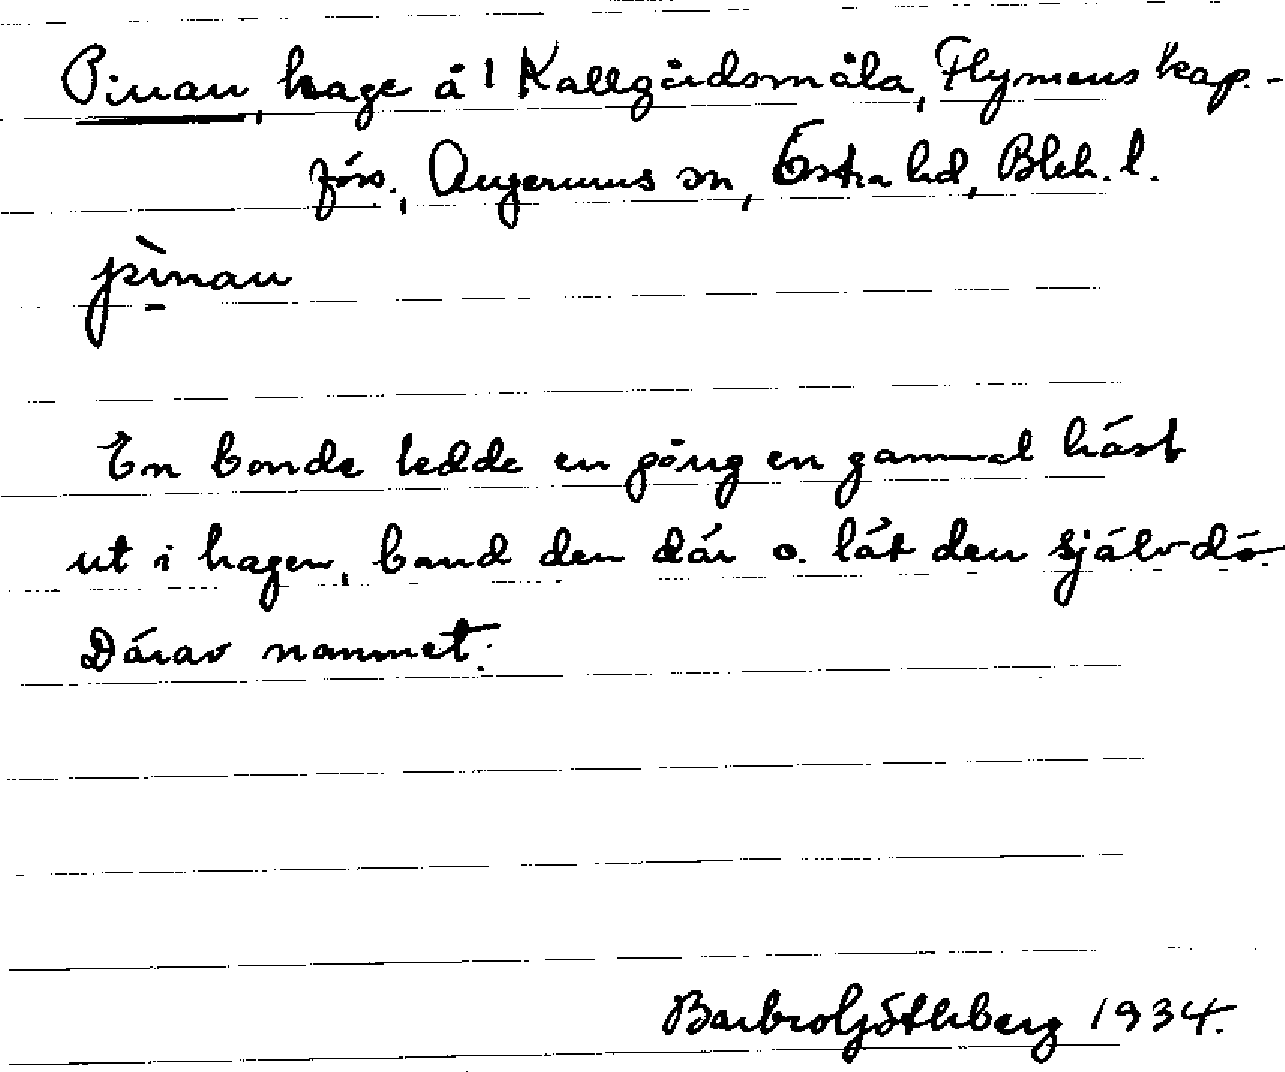 Pinan, hage å 1 Kallgårdsmåla, Flymens kap.-
förs., Augerums sn, Östra hd, Blek. l.
pìnan
En bonde ledde en gång en gammal häst
ut i hagen, band den där o. lät den självdö.
Därav namnet.
Barbro Göthberg 1934.